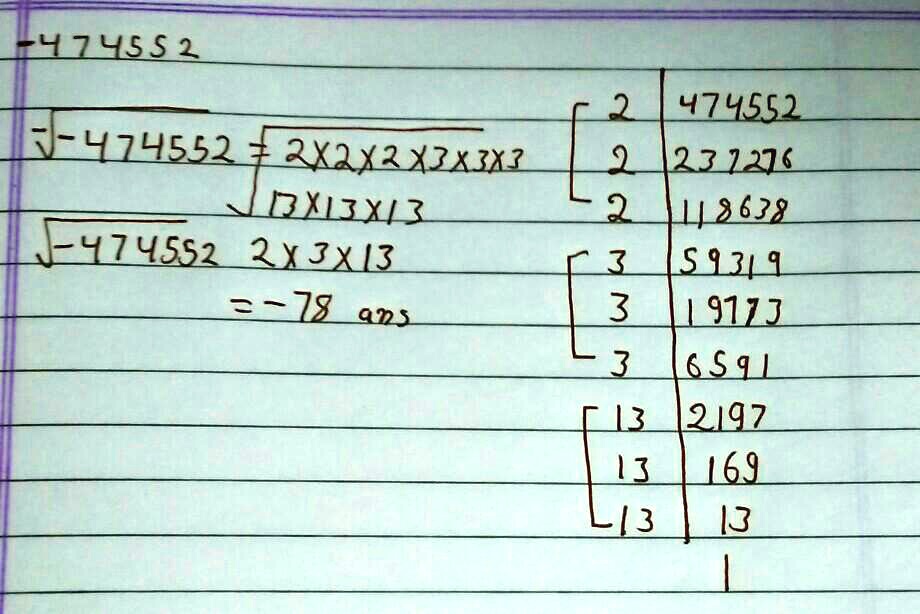 -474552
-√-474552 = √2×2×2×3×3×3
13×13×13
√-474552 2×3×13
=-78 ans
2 | 474552
2 | 237276
2 | 118638
3 | 59319
3 | 19773
3 | 6591
13 | 2197
13 | 169
13 | 13
1